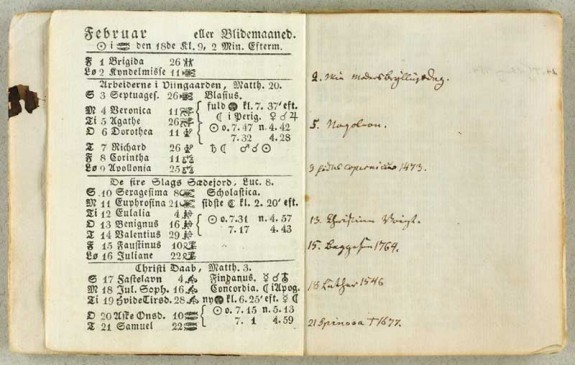 Februar eller Blidemaaned.
☉ i ♒ den 18de Kl. 9, 2 Min. Efterm.
F 1 Brigida 26
Lø 2 Kyndelmisse 11
Arbeiderne i Viingaarden, Matth. 20.
S 3 Septuages. 26 Blasius.
M 4 Veronica 11 fuld kl. 7. 37' eft.
Ti 5 Agathe 26 ☾ i Perig. ♀ ☌ ♃
O 6 Dorothea 11 ☉ o. 7. 47 n. 4. 42
7. 32 4. 28
T 7 Richard 26
F 8 Corintha 11
Lø 9 Apollonia 25
De fire Slags Sædejord, Luc. 8.
S 10 Seragesima 8 Scholastica.
M 11 Euphrosina 21 sidste ☾ kl. 2. 20' eft.
Ti 12 Eulalia 4
O 13 Benignus 16 ☉ o. 7.31 n. 4. 57
T 14 Valentius 29 7. 17 4. 43
F 15 Faustinus 10
Lø 16 Juliane 22
Christi Daab, Matth. 3.
S 17 Fastelavn 4 Findanus.
M 18 Jul. Soph. 16 Concordia. ☾ i Apog.
Ti 19 HvideTirsd. 28 ny kl. 6. 25' eft. ☿ ☾
O 20 Aske Onsd. 10 ☉ o. 7. 15 n. 5. 13
T 21 Samuel 22 7. 1 4. 59
2. Min
5. Napoleon.
Copernicus 1473.
13. Christian
15. Baggesen 1764.
18 Luther 1546
21 Spinosa † 1677.